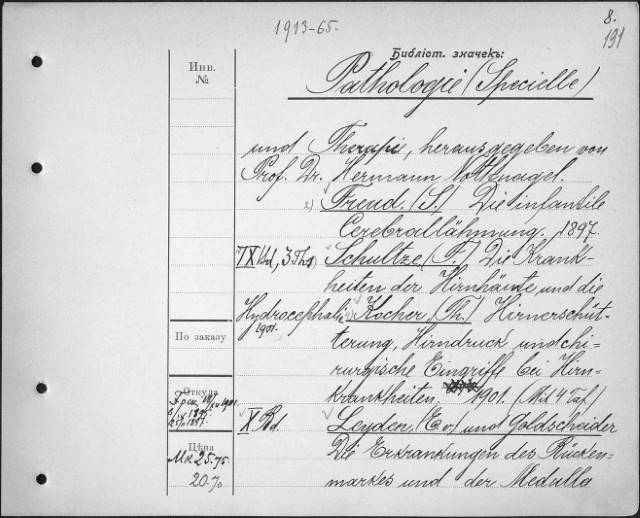 1913-65.
8.
191
Библіот. значекъ:
Инв.
№
Pathologie (Specielle)
und Therapie, herausgegeben von
Prof. Dr. Hermann Nothnagel.
2) Freud. (S.) Die infantile
Cerebrallähmung. 1897.
IX Bd, 3 Th. Schultze (F.) Die Krank=
heiten der Hirnhäute und die
Hydrocephalie Kocher (Th.) Hirnerschüt=
1901.
terung, Hirndruck und chi=
По заказу
rurgische Eingriffe bei Hirn=
krankheiten. 1901. (Mit 4 Taf.)
Откуда
X Bd. Leyden (E. v.) und Goldscheider
Цѣна
Die Erkrankungen des Rücken=
Mk 25.75
20.70
markes und der Medulla